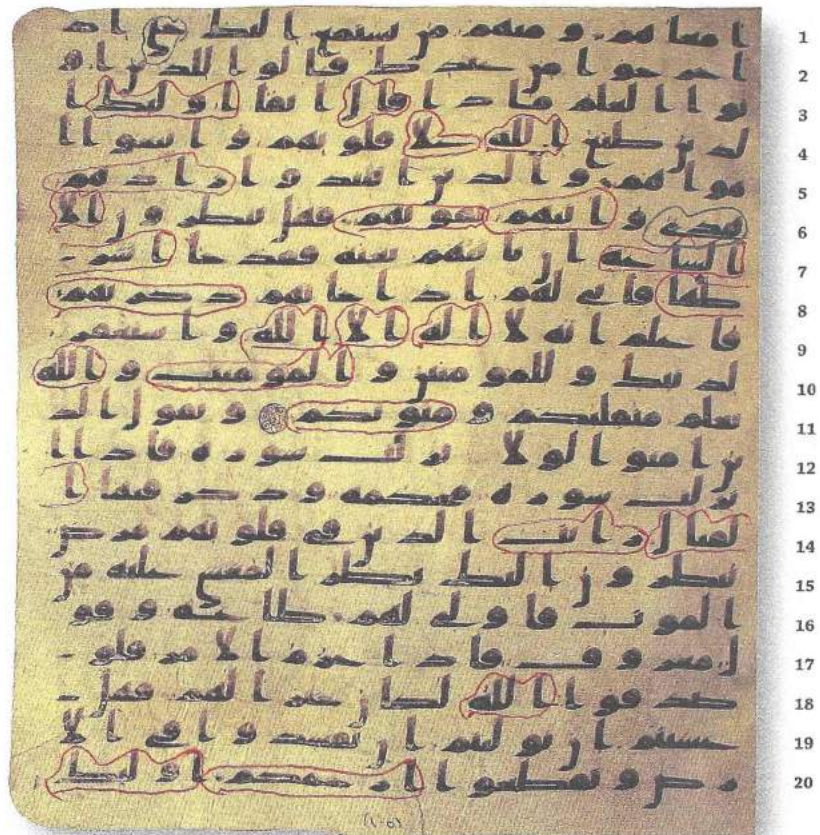 امعاهم ومنهم من يستمع اليك حتى اذ 1
اخرجوا من عندك قالوا للذين او 2
توا العلم ماذا قال انفا اوليك ا 3
لذين طبع الله على قلوبهم واتبعوا ا 4
هواهم والذين اهتدوا زادهم 5
هدى واتيهم تقويهم فهل ينظرون الا 6
الساعة ان تاتيهم بغتة فقد جا اشر 7
طها فانى لهم اذا جاتهم ذكريهم 8
فاعلم انه لا اله الا الله واستغفر 9
لذنبك وللمومنين والمومنت والله 10
يعلم متقلبكم ومثويكم ويقول الذ 11
ين امنوا لولا نزلت سورة فاذا ا 12
نزلت سورة محكمة وذكر فيها ا 13
لقتال رايت الذين في قلوبهم مرض 14
ينظرون اليك نظر المغشي عليه من 15
الموت فاولى لهم طاعة وقو 16
ل معروف فاذا عزم الامر فلو 17
صدقوا الله لكان خيرا لهم فهل 18
عسيتم ان توليتم ان تفسدوا في الا 19
رض وتقطعوا ارحمكم اوليك 20